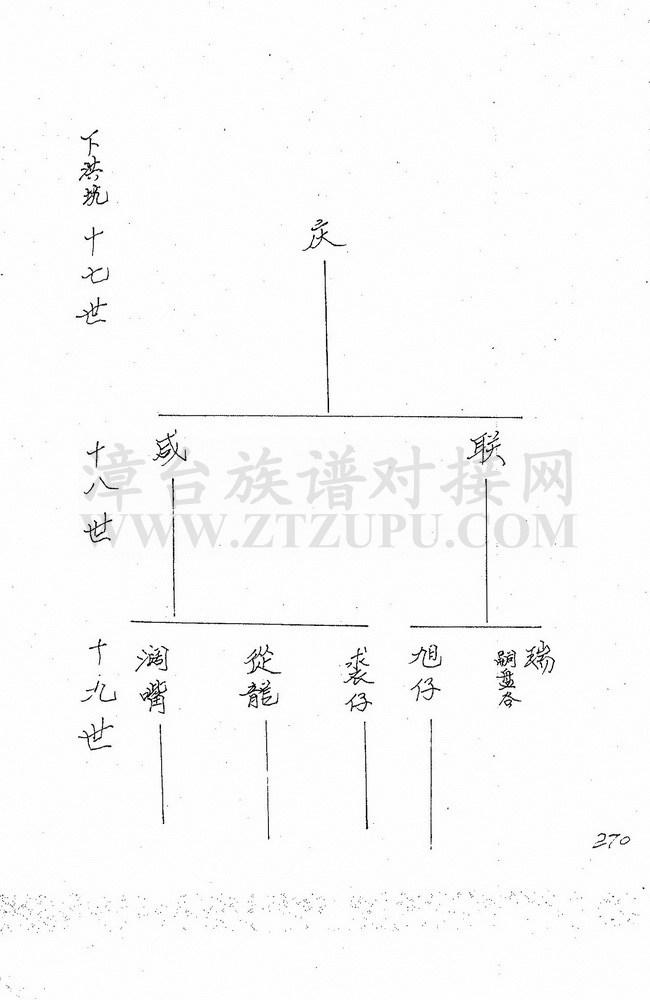 下洪坑 十七世
庆
十八世
咸
联
十九世
阔嘴
從龍
裘仔
旭仔
瑞
嗣盘谷
270
漳台族谱对接网
WWW.ZTZUPU.COM